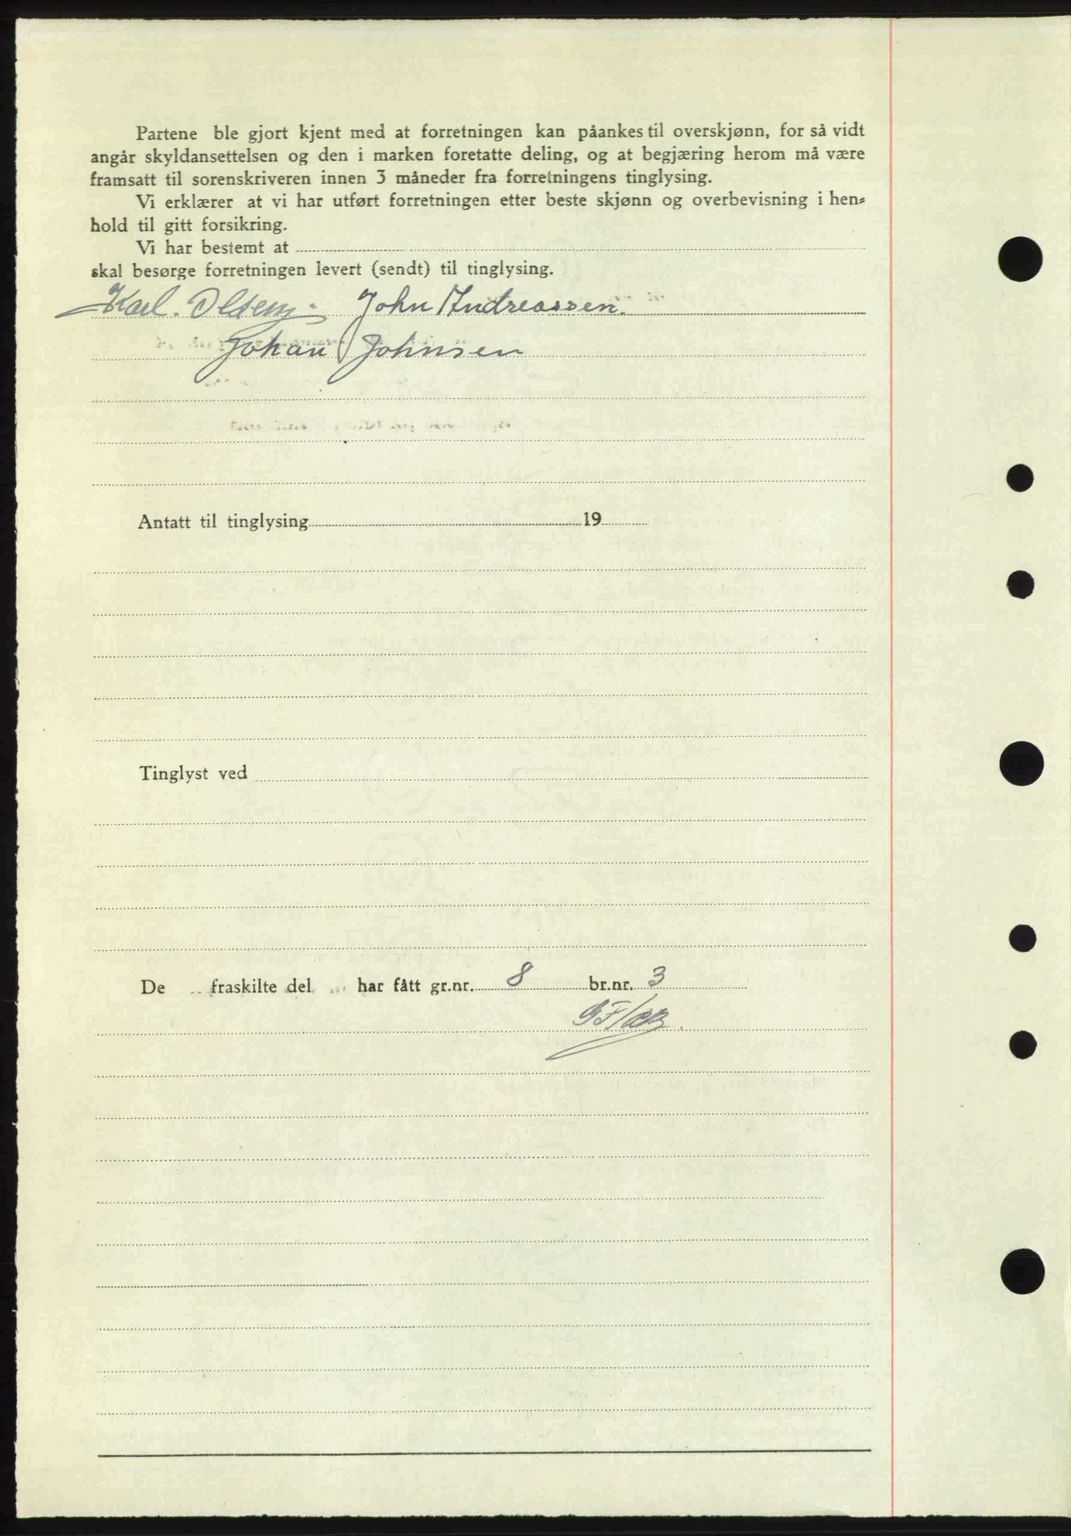 Partene ble gjort kjent med at forretningen kan påankes til overskjønn, for så vidt
angår skyldansettelsen og den i marken foretatte deling, og at begjæring herom må være
framsatt til sorenskriveren innen 3 måneder fra forretningens tinglysing.
Vi erklærer at vi har utført forretningen etter beste skjønn og overbevisning i hen=
hold til gitt forsikring.
Vi har bestemt at
skal besørge forretningen levert (sendt) til tinglysing.
Karl. Olsen; John Andreassen.
Johan Johnsen
Antatt til tinglysing 19
Tinglyst ved
De fraskilte del har fått gr.nr. 8 br.nr. 3